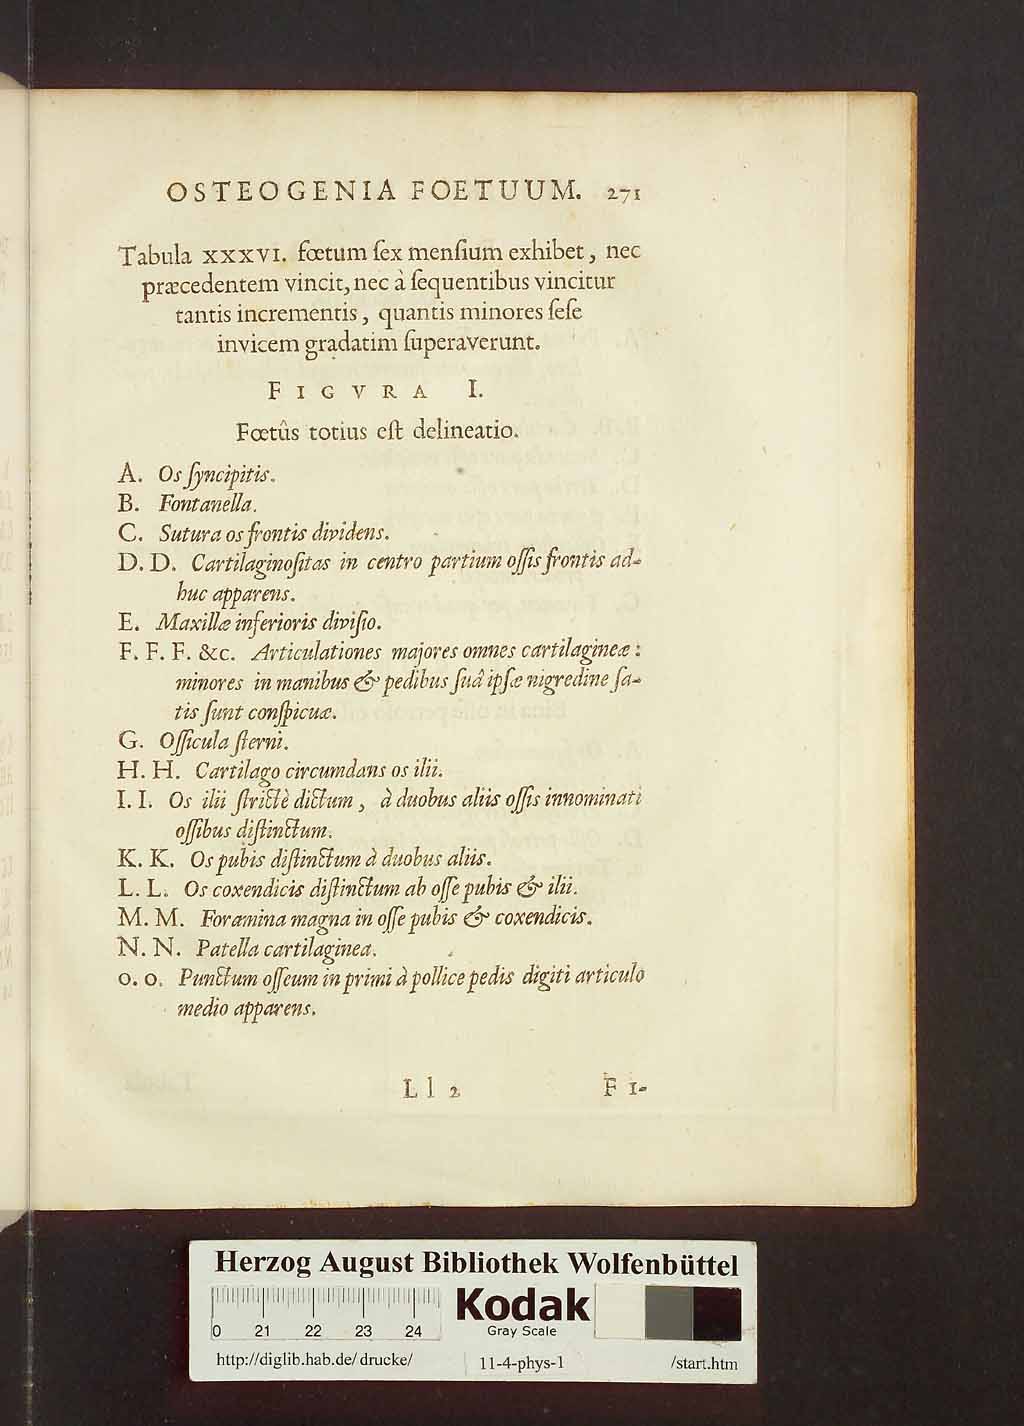 OSTEOGENIA FOETUUM. 271
Tabula XXXVI. fœtum ſex menſium exhibet, nec
præcedentem vincit, nec à ſequentibus vincitur
tantis incrementis, quantis minores ſeſe
invicem gradatim ſuperaverunt.
FIGVRA I.
Fœtûs totius eſt delineatio.
A. Os ſyncipitis.
B. Fontanella.
C. Sutura os frontis dividens.
D. D. Cartilaginoſitas in centro partium oſſis frontis ad-
huc apparens.
E. Maxillæ inferioris diviſio.
F. F. F. &c. Articulationes majores omnes cartilagineæ:
minores in manibus & pedibus ſuâ ipſæ nigredine ſa-
tis ſunt conſpicuæ.
G. Oſſicula ſterni.
H. H. Cartilago circumdans os ilii.
I. I. Os ilii ſtrictè dictum, à duobus aliis oſſis innominati
oſſibus diſtinctum.
K. K. Os pubis diſtinctum à duobus aliis.
L. L. Os coxendicis diſtinctum ab oſſe pubis & ilii.
M. M. Foramina magna in oſſe pubis & coxendicis.
N. N. Patella cartilaginea.
o. o. Punctum oſſeum in primi à pollice pedis digiti articulo
medio apparens.
Ll 2 FI-
Herzog August Bibliothek Wolfenbüttel
Kodak
Gray Scale
0 21 22 23 24
http://diglib.hab.de/drucke/ 11-4-phys-1 /start.htm